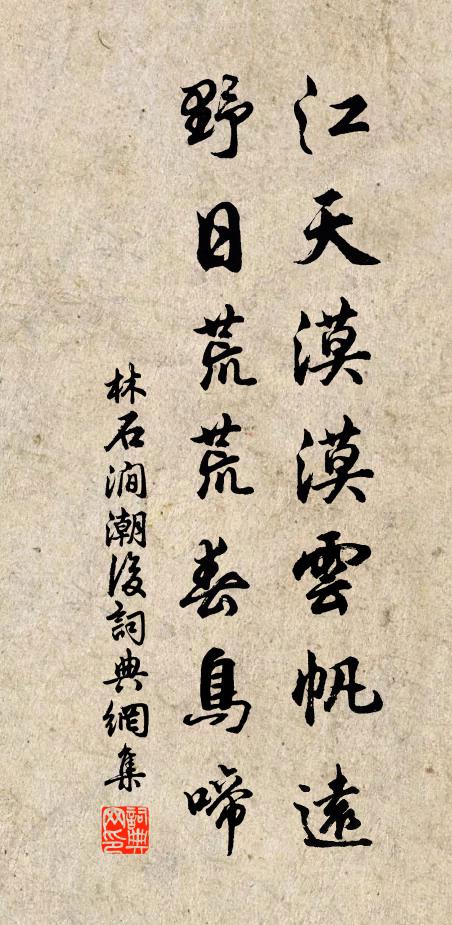 江天漠漠雲帆遠
野日荒荒春鳥啼
林石澗潮後詞典網集
詞典
网印